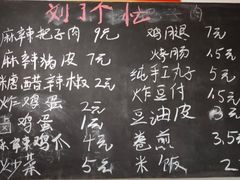 划个杠
麻辣把子肉 9元
麻辣猪皮 7元
醋辣椒 2元
炸鸡蛋 2元
卤鸡蛋 1元
鸡爪
炒菜 5元
肉
鸡腿 7元
烤肠 1.5元
纯手工丸子 5元
炸豆付 1.5元
豆油皮 2元
卷煎 3.5元
米饭 2